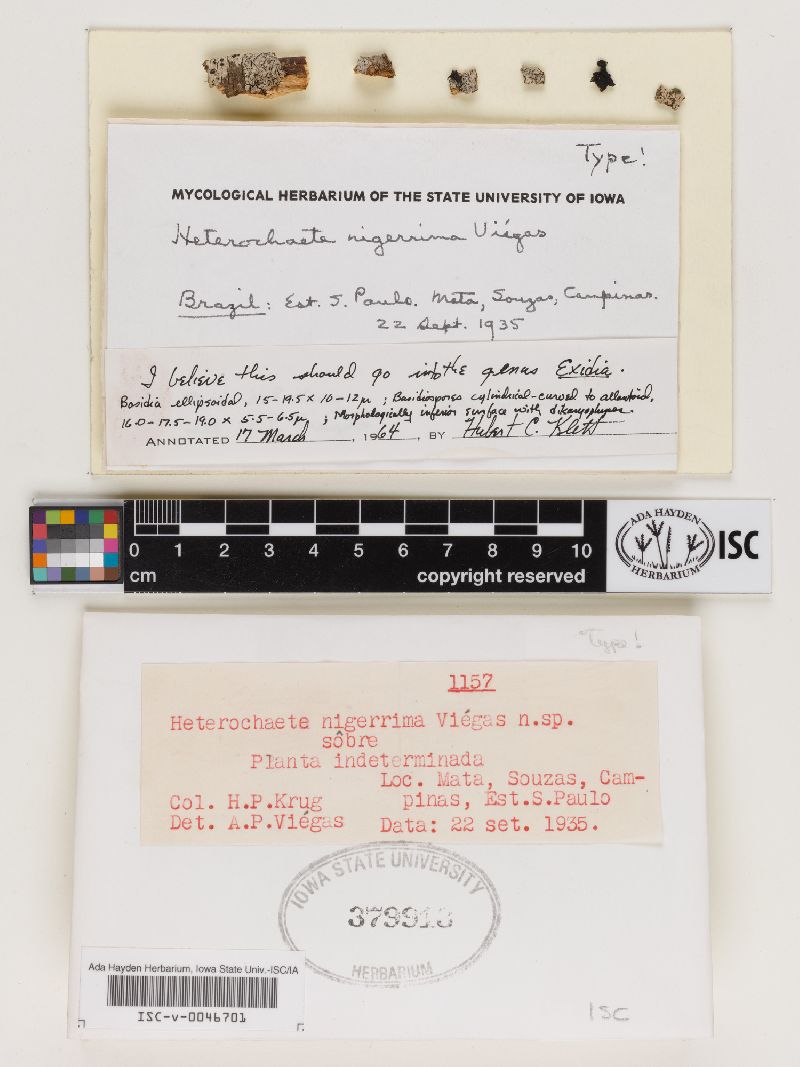 Type!
MYCOLOGICAL HERBARIUM OF THE STATE UNIVERSITY OF IOWA
Heterochaete nigerrima Viégas
Brazil: Est. S. Paulo. Mata, Souzas, Campinas.
22 Sept. 1935
I believe this should go into the genus Exidia.
Basidia ellipsoidal, 15-19.5 x 10-12µ; Basidiospores cylindrical-curved to allantoid,
16.0-17.5-19.0 x 5.5-6.5µ; Morphologically inferior surface with dikaryophyses.
ANNOTATED 17 March, 1964, BY Hubert C. Klett
0 1 2 3 4 5 6 7 8 9 10
cm copyright reserved
ADA HAYDEN
HERBARIUM
ISC
Type!
1157
Heterochaete nigerrima Viégas n.sp.
sôbre
Planta indeterminada
Loc. Mata, Souzas, Cam-
Col. H.P.Krug pinas, Est.S.Paulo
Det. A.P.Viégas Data: 22 set. 1935.
IOWA STATE UNIVERSITY
379913
HERBARIUM
Ada Hayden Herbarium, Iowa State Univ.-ISC/IA
ISC-v-0046701
ISC